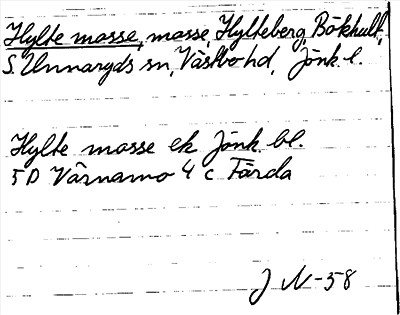 Hylte mosse, mosse, Hylteberg, Bökhult,
S. Unnaryds sn, Västbo hd, Jönk. l.
Hylte mosse ek Jönk. bl.
5D Värnamo 4 c Färda
J N-58